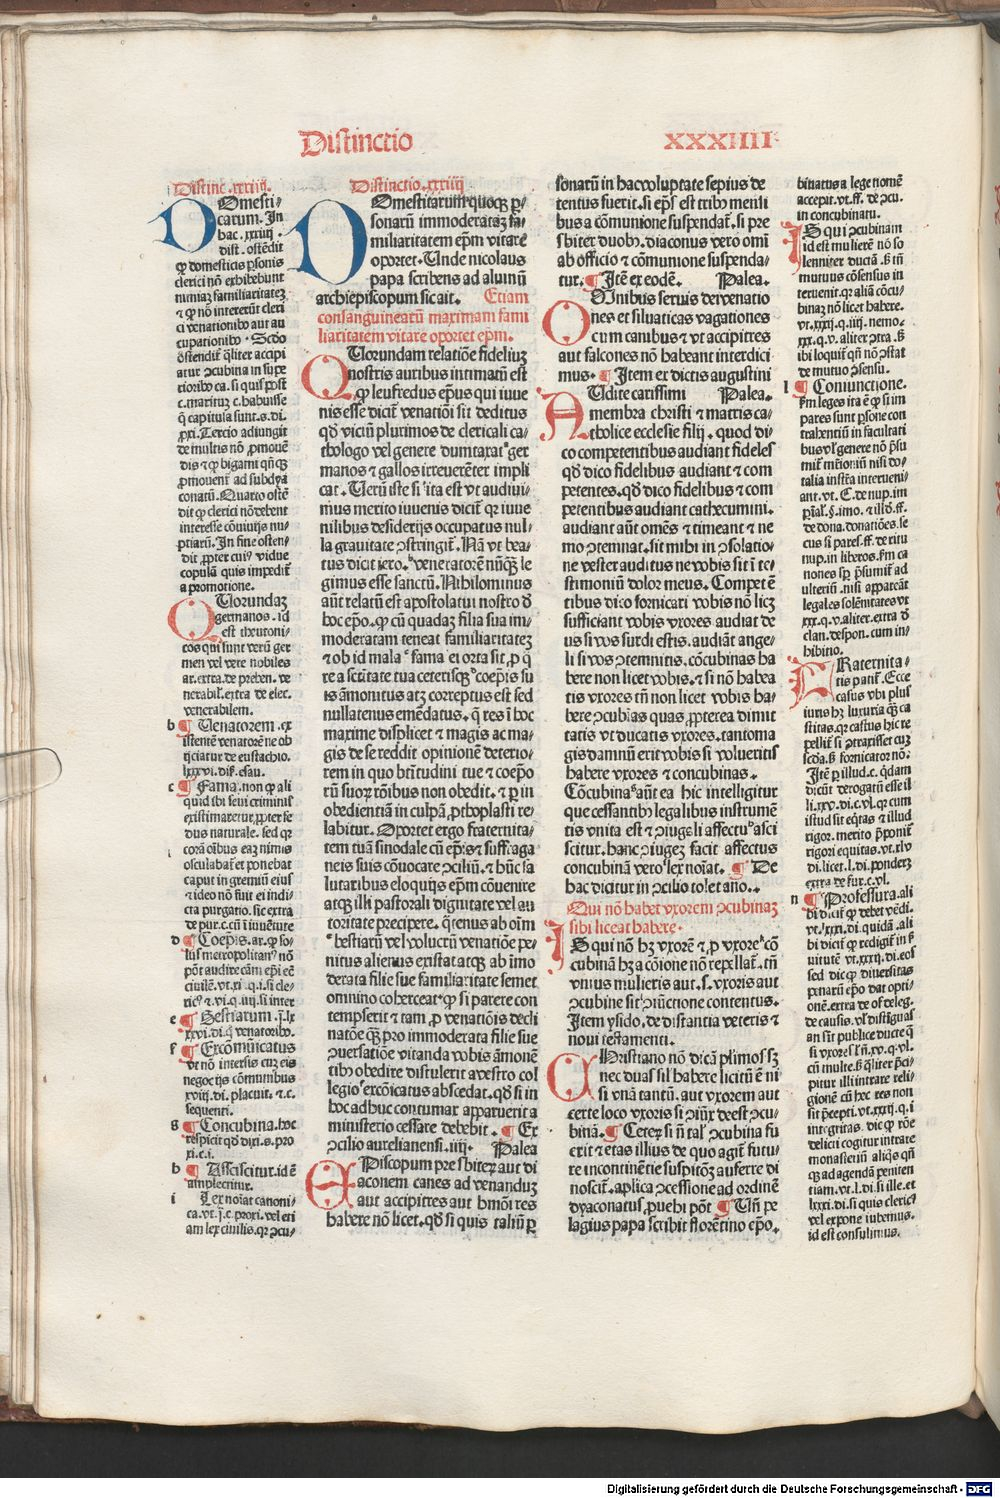 Distinctio
XXXIIII
Distinc .xxxiiij.
DOmesti-
catum. In
hac .xxxiiij.
dist. oſtēdit
ꝙ domeſticis ꝑſonis
clerici nō exhibebunt
nimiaꝫ familiaritateꝫ
⁊ ꝙ nō intererūt cleri
ci venationibꝰ aut au
cupationibꝰ. Scdo
oſtendit q̄liter accipi
atur ꝯcubina in ſupe
rioribꝰ ca. ſi quis poſt
c. maritū ⁊ c. habuiſſe
q̄ capitula ſunt. s. di.
ꝓxi. Tercio adiungit
de multis nō ꝓmouē
dis ⁊ ꝙ bigami qn̄qꝫ
ꝓmouent̄ ad ſubdya
conatū. Quarto oſtē
dit ꝙ clerici nō debent
intereſſe cōuiuijs nu-
ptiarū. In fine oſten-
dit ꝓpter cuiꝰ vidue
copulā quis impedit̄
a promotione.
QUorundaꝫ
germanos. id
eſt theutoni-
cos qui ſunt verū ger
men vel vere nobiles
ar. extra. de preben. ve
nerabil. extra de elec.
venerabilem.
b ¶ Venatorem. ex
iſtentē venatorē ne ob
ijciatur de euſtachio.
lxxxvi. diſ. eſau.
c ¶ Fama. non ꝙ ali
quid ibi ſeui criminis
exiſtimaretur ꝓpter fe
dus naturale. ſed qꝛ
corā oībus eaꝫ nimis
oſculabat̄ et ponebat
caput in gremiū eiuſ
⁊ ideo nō fuit ei indi-
cta purgatio. ſic extra
de pur. c. cū i iuuētute
d ¶ Coepis. ar. ꝙ ſo-
lus metropolitanꝰ nō
pōt audire cām epi eē
ciuilē. vt. xi. q. i. ſi cle-
ricꝰ ⁊ vi. q. iiij. ſi inter
e ¶ Beſtiarum. ſ. lx
xxvi. di. q̄ venatoribꝰ.
f ¶ Excōmunicatus
vt nō interſis cuꝫ eis
negocijs cōmunibus
xviij. di. placuit. ⁊ c.
ſequenti.
g ¶ Concubina. hoc
reſpicit qd dixi. s. pro
xi. c. i.
h ¶ Aſſciſcitur. id ē
amplectitur.
i Lex noīat canoni-
ca. vt. j. e. proxi. vel eti
am lex ciuilis. qꝛ ꝯcu-
Diſtinctio .xxxiiij
DOmeſticatum quoqꝫ ꝑ-
ſonarū immoderataꝫ fa-
miliaritatem ep̄m vitare
oportet. Unde nicolaus
papa ſcribens ad aluinū
archiepiſcopum ſic ait. Etiam
conſanguinearū maximam fami
liaritatem vitare oportet ep̄m.
QUorundam relatiōe fideliuꝫ
noſtris auribus intimatū eſt
ꝙ leufredus ep̄us qui iuue
nis eſſe dicit̄ venatiōi ſit deditus
qd viciū plurimos de clericali ca-
thologo vel genere dumtaxat ger
manos ⁊ gallos irreuerēter impli
cat. Uerū iſte ſi ita eſt vt audiui-
mus merito iuuenis dicit̄ qꝛ iuue
nilibus deſiderijs occupatus nul-
la grauitate ꝯſtringit̄. Nā vt bea-
tus dicit iero. venatorem nūqꝫ le
gimus eſſe ſanctū. Nihilominus
aūt relatū eſt apoſtolatui noſtro d
hoc ep̄o. ꝙ cū quadaꝫ filia ſua im-
moderatam teneat familiaritateꝫ
⁊ ob id mala fama ei orta ſit, ꝓ q̄
re a ſctitate tua ceteriſqꝫ coep̄is ſu
is āmonitus atqꝫ correptus eſt ſed
nullatenus emēdatus. q̄ res i hoc
maxime diſplicet ⁊ magis ac ma-
gis de ſe reddit opinionē deterio-
rem in quo btītudini tue ⁊ coep̄o
rū ſuoꝝ rōibus non obedit. ⁊ ꝑ in
obedientiā in culpā ꝓthoplaſti re-
labitur. Oportet ergo fraternita-
tem tuā ſinodale cū ep̄is ⁊ ſuffraga
neis ſuis cōuocare ꝯciliū. ⁊ hūc ſa
lutaribus eloquijs ep̄m cōuenire
atqꝫ illi paſtorali dignitate vel au
toritate precipere. q̄tenus ab oīm
beſtiarū vel volucrū venatiōe pe-
nitus alienus exiſtat atqꝫ ab īmo
derata filie ſue familiaritate ſemet
omnino coherceat. ꝙ ſi parere con
tempſerit ⁊ tam ꝓ venatiōis decli
natōe qꝫ pro immoderata filie ſue
ꝯuerſatiōe vitanda vobis āmonē
tibꝰ obedire diſtulerit a veſtro col
legio excōicatus abſcedat. qd ſi in
hoc adhuc contumax apparuerit a
miniſterio ceſſare debebit. ¶ Ex
ꝯcilio aurelianenſi. iiij. Palea
EPiſcopum preſbiteꝝ aut di
aconem canes ad venanduꝫ
aut accipitres aut hmōi res
habere nō licet. qd ſi quis taliū ꝑ
ſonarū in hac voluptate ſepius de
tentus fuerit. ſi ep̄s eſt tribꝰ menſi
bus a cōmunione ſuſpendat̄. ſi pre
ſbiter duobꝰ. diaconus vero omī
ab officio ⁊ cōmunione ſuſpenda-
tur. ¶ Itē ex eodē. Palea.
OMnibus ſeruis dei venatio
nes et ſiluaticas vagationes
cum canibus ⁊ vt accipitres
aut falcones nō habeant interdici
mus. ¶ Item ex dictis auguſtini
AUdite cariſſimi Palea.
membra chriſti ⁊ matris ca-
tholice eccleſie filij. quod di-
co competentibus audiant fideles
qd dico fidelibus audiant ⁊ com
petentes. qd dico fidelibus ⁊ com
petentibus audiant cathecumini.
audiant aūt omēs ⁊ timeant ⁊ ne
mo ꝯtemnat. ſit mihi in ꝯſolatio-
ne veſter auditus ne vobis ſit ī te-
ſtimoniū dolor meus. Compet ē
tibus dico fornicari vobis nō licꝫ
ſufficiant vobis vxores audiat de
us ſi vos ſurdi eſtis. audiāt ange-
li ſi vos ꝯtemnitis. cōcubinas ha
bere non licet vobis. ⁊ ſi nō habea
tis vxores tn̄ non licet vobis ha-
bere ꝯcubīas quas ꝓpterea dimit
tatis vt ducatis vxores. tantoma
gis damnū erit vobis ſi volueritis
habere vxores ⁊ concubinas.
Cōcubina aūt ea hic intelligitur
que ceſſantibꝰ legalibus inſtrumē
tis vnita eſt ⁊ ꝯiugali affectu aſci
ſcitur. hanc ꝯiugeꝫ facit affectus
concubinā vero lex noīat. ¶ De
hac dicitur in ꝯcilio tolet ano.
Qui nō habet vxorem ꝯcubinaꝫ
ſibi liceat habere.
IS qui nō hꝫ vxorē ⁊ ꝓ vxore cō
cubinā hꝫ a cōione nō repellat̄. tn̄
vnius mulieris aut. ſ. vxoris aut
ꝯcubine ſit ꝯiūctione contentus.
Item yſido. de diſtantia veteris ⁊
noui teſtamenti.
CHriſtiano nō dicā plīmos ſꝫ
nec duas ſil habere licitū ē ni
ſi vnā tantū. aut vxorem aut
certe loco vxoris ſi ꝯiūx deeſt ꝯcu-
binā. ¶ Ceteꝝ ſi n̄ talꝭ ꝯcubina fu
erit ⁊ etas illius de quo agit̄ futu-
re incontinētie ſuſpitōꝫ auferre di
noſcit̄. aplica ꝯceſſione ad ordinē
dyaconatus ꝓuehi pōt ¶ Un̄ pe
lagius papa ſcribit florētino ep̄o.
binatus a lege nomē
accepit. vt. ff. de ꝯcu.
in concubinatu.
IS qui ꝯcubinam
id eſt mulierē nō ſo
lenniter ductā. ſꝫ tn̄
mutuus cōſenſus in
teruenit. qꝛ aliā cōcu-
binaꝫ nō licet habere.
vt. xxxij. q. iiij. nemo.
xxx. q. v. aliter ⁊ tra. ſꝫ
ibi loquit̄ qn̄ nō ꝯſtat
de mutuo ꝯſenſu.
l ¶ Coniunctione.
ſm leges ita ē ꝙ ſi im
pares ſunt ꝑſone con
trahentiū in facultati
bus vꝉ genere nō p̄ſu
mit̄ mr̄imoniū niſi do-
talia inſtra interueni-
ant. vt. C. de nup. im
ꝑial. §. imo. ⁊ illd. ff.
de dona. donatiōes. ſe
cus ſi pareſ. ff. de ritu
nup. in liberos. ſm ca
nones ſꝑ p̄ſumit̄ ad
ulteriū. niſi appareāt
legales ſolēnitates vt
xxx. q. v. aliter. extra d
clan. deſpon. cum in-
hibitio.
FRaternita-
tis pant̄. Ecce
caſus vbi plus
iuris hꝫ luxuria qꝫ ca
ſtitas. qꝛ caſtus hic re
pellit̄ ſi ꝯtraxiſſet cuꝫ
ſcd̄a. ſꝫ fornicator nō.
Itē ꝑ illud. c. q̄dam
dicūt derogatū eſſe il
li. xxv. di. c. vl. qꝛ cum
iſtud ſit eq̄tas ⁊ illud
rigor. merito p̄ponit̄
rigori equitas. vt. xlv
di. licet. l. di. ponderꝫ
extra de fur. c. vl.
n ¶ Profeſſura. ali
bi dicit̄ ꝙ debet v̄di.
vt. lxxxi. di. quidā. ali
bi dicit̄ ꝙ redigit̄ in ſꝫ
vitutē vt. xxxij. di. eos
ſed dic ꝙ diuerſitas
penarū ep̄o dat opti-
onē. extra de of. deleg.
de cauſis. vꝉ diſtiguas
an ſit publice ducte q̄
ſi vxores ſn̄. xv. q. vl.
cū multe. ſꝫ q̄liter p̄ci-
pitur illi intrare reli-
gionē cū hoc res non
ſit p̄cepti. vt. xxxij. q. i
integritas. dic ꝙ rōe
delicti cogitur intrare
monaſteriū aliq̄s qn̄
qꝫ ad agendā peniten
tiam. vt. l. di. ſi ille. et
lxxxi. di. ſi quis clericꝰ
vel expone iubemus.
id eſt conſulimus.
Digitalisierung gefördert durch die Deutsche Forschungsgemeinschaft - DFG